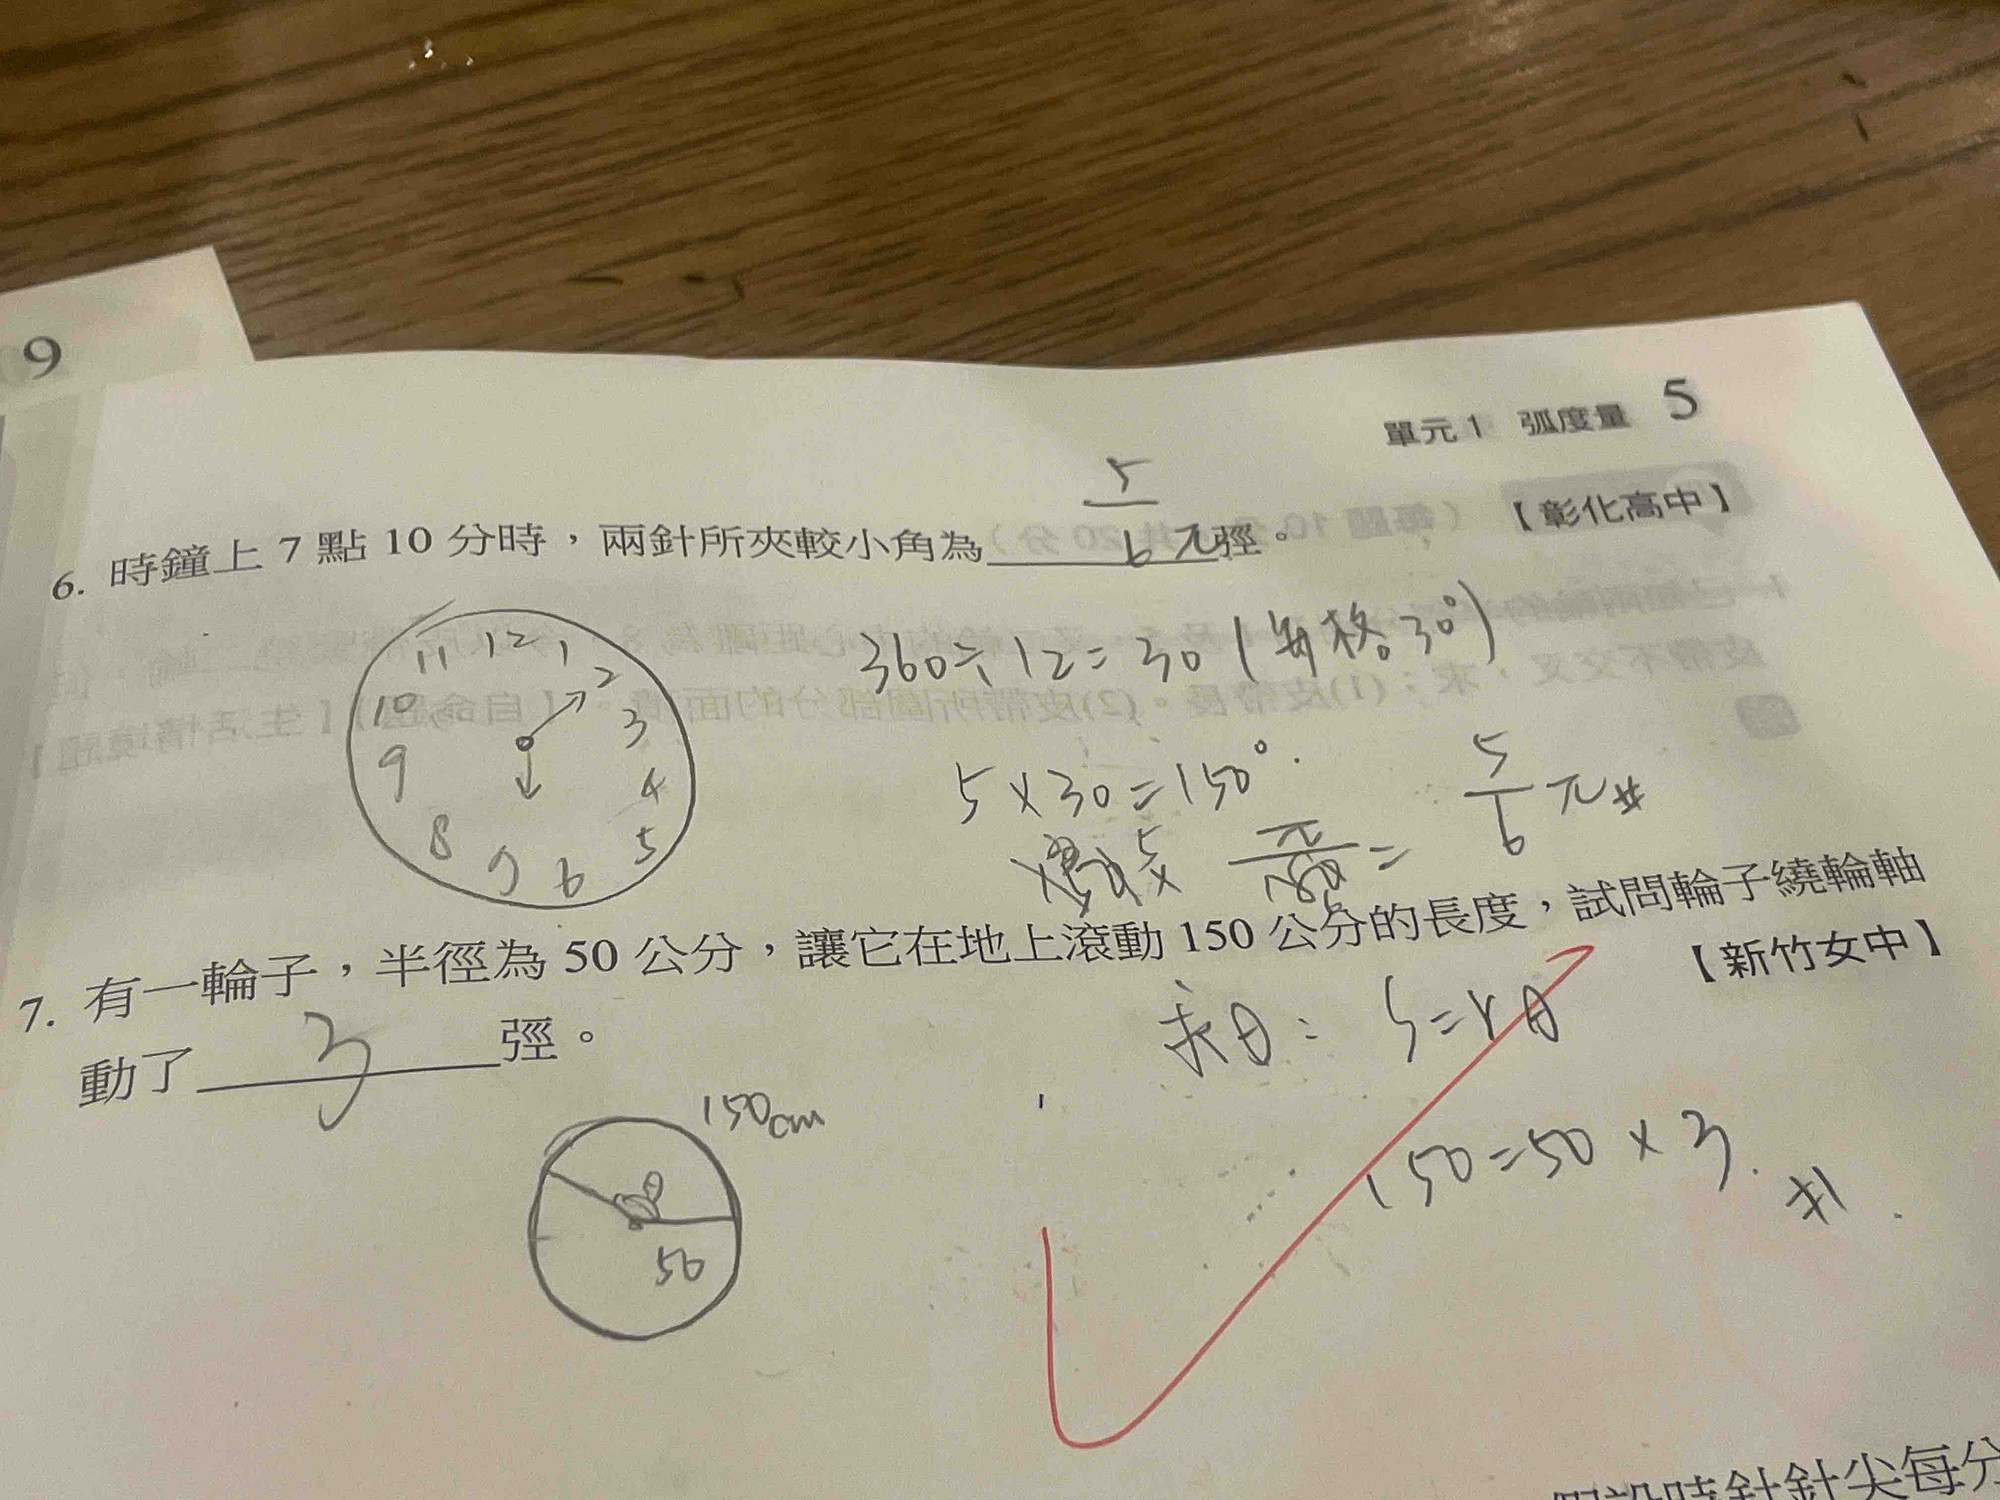 9
單元1 弧度量 5
6. 時鐘上 7 點 10 分時，兩針所夾較小角為 5/6 π 弳。 【彰化高中】
11 12 1
10 2
9 3
8 4
7 6 5
360÷12=30(每格30°)
5×30=150°
5/6 π #
7. 有一輪子，半徑為 50 公分，讓它在地上滾動 150 公分的長度，試問輪子繞輪軸
動了 3 弳。 【新竹女中】
求θ: S=rθ
150cm
θ
50
150=50×3 #
假設時針針尖每分